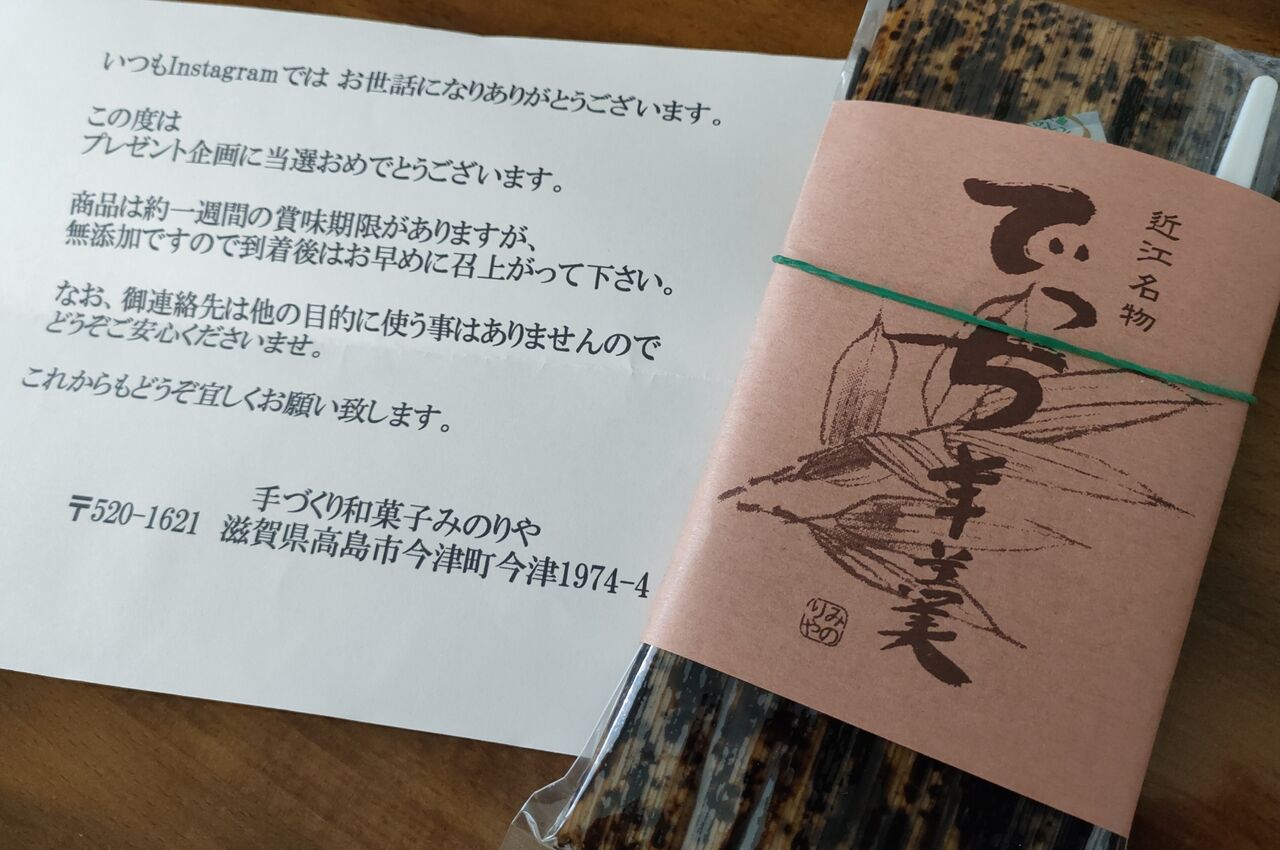 いつもInstagramでは お世話になりありがとうございます。
この度は
プレゼント企画に当選おめでとうございます。
商品は約一週間の賞味期限がありますが、
無添加ですので到着後はお早めに召上がって下さい。
なお、御連絡先は他の目的に使う事はありませんので
どうぞご安心くださいませ。
これからもどうぞ宜しくお願い致します。
手づくり和菓子みのりや
〒520-1621 滋賀県高島市今津町今津1974-4
近江名物
でっち羊羹
みの
りや